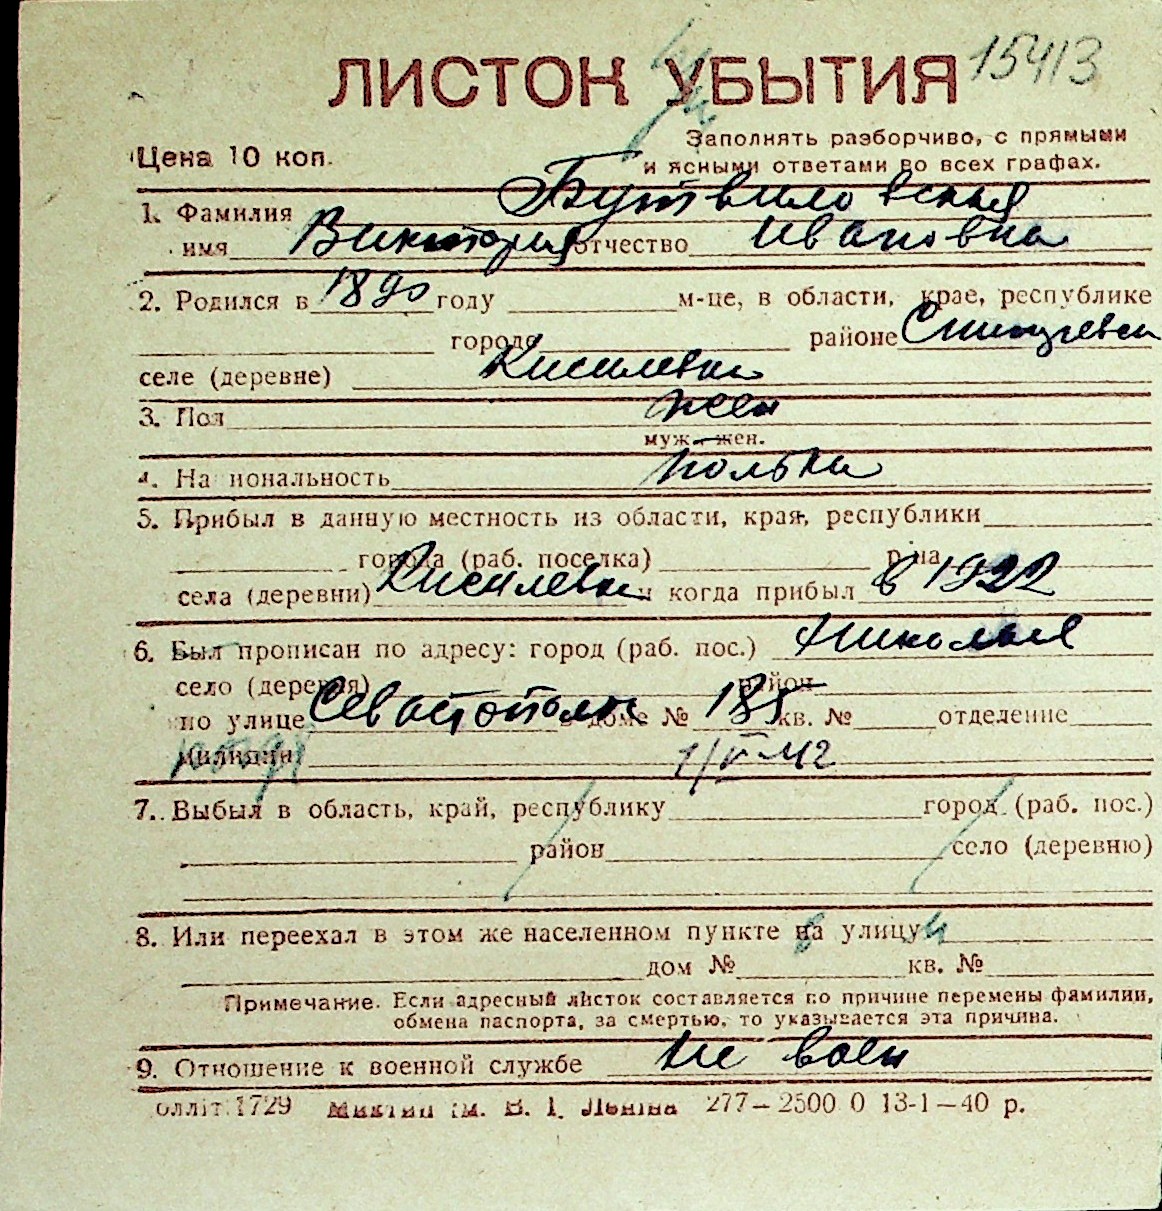 15413
ЛИСТОК УБЫТИЯ
Цена 10 коп.
Заполнять разборчиво, с прямыми
и ясными ответами во всех графах.
1. Фамилия Бутвиловская
имя Виктория отчество Ивановна
2. Родился в 1890 году м-це, в области, крае, республике
городе районе
селе (деревне) Кисилевки
3. Пол жен
муж. жен.
4. Национальность полька
5. Прибыл в данную местность из области, края, республики
города (раб. поселка) р-на
села (деревни) Кисилевки и когда прибыл в 1922
6. Был прописан по адресу: город (раб. пос.) Николаев
село (деревня) район
по улице Севастополь в доме № 185 кв. № отделение
милиции 1/V-42
7. Выбыл в область, край, республику город (раб. пос.)
район село (деревню)
8. Или переехал в этом же населенном пункте на улицу
дом № кв. №
Примечание. Если адресный листок составляется по причине перемены фамилии,
обмена паспорта, за смертью, то указывается эта причина.
9. Отношение к военной службе не воен
олліт 1729 ім. В. І. Леніна 277—2500 0 13-1—40 р.